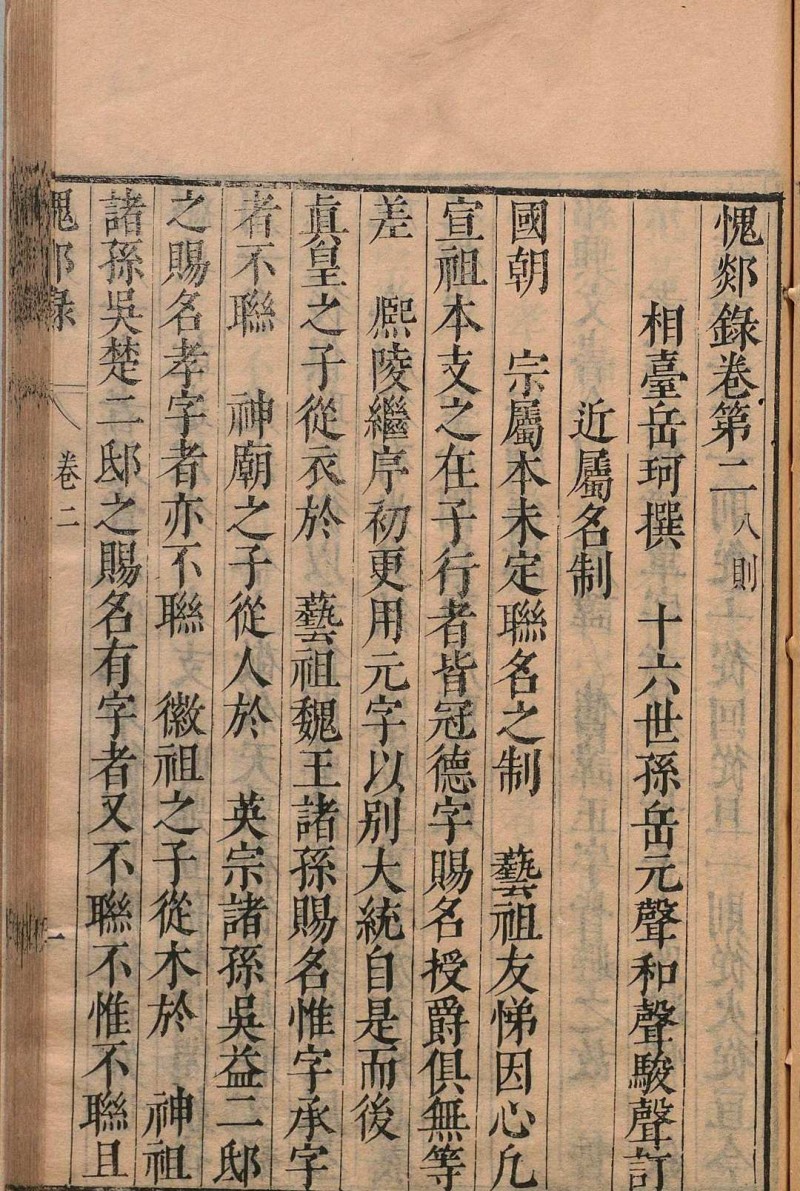 愧郯錄卷第二 八則
相臺岳珂撰 十六世孫岳元聲和聲駿聲訂
近屬名制
國朝 宗屬本未定聯名之制 藝祖友悌因心凡
宣祖本支之在子行者皆冠德字賜名授爵俱無等
差 熈陵繼序初更用元字以別大統自是而後
眞皇之子從衣於 藝祖魏王諸孫賜名惟字承字
者不聯 神廟之子從人於 英宗諸孫吳益二邸
之賜名孝字者亦不聯 徽祖之子從木於 神祖
諸孫吳楚二邸之賜名有字者又不聯不惟不聯且
愧郯錄 卷二 一